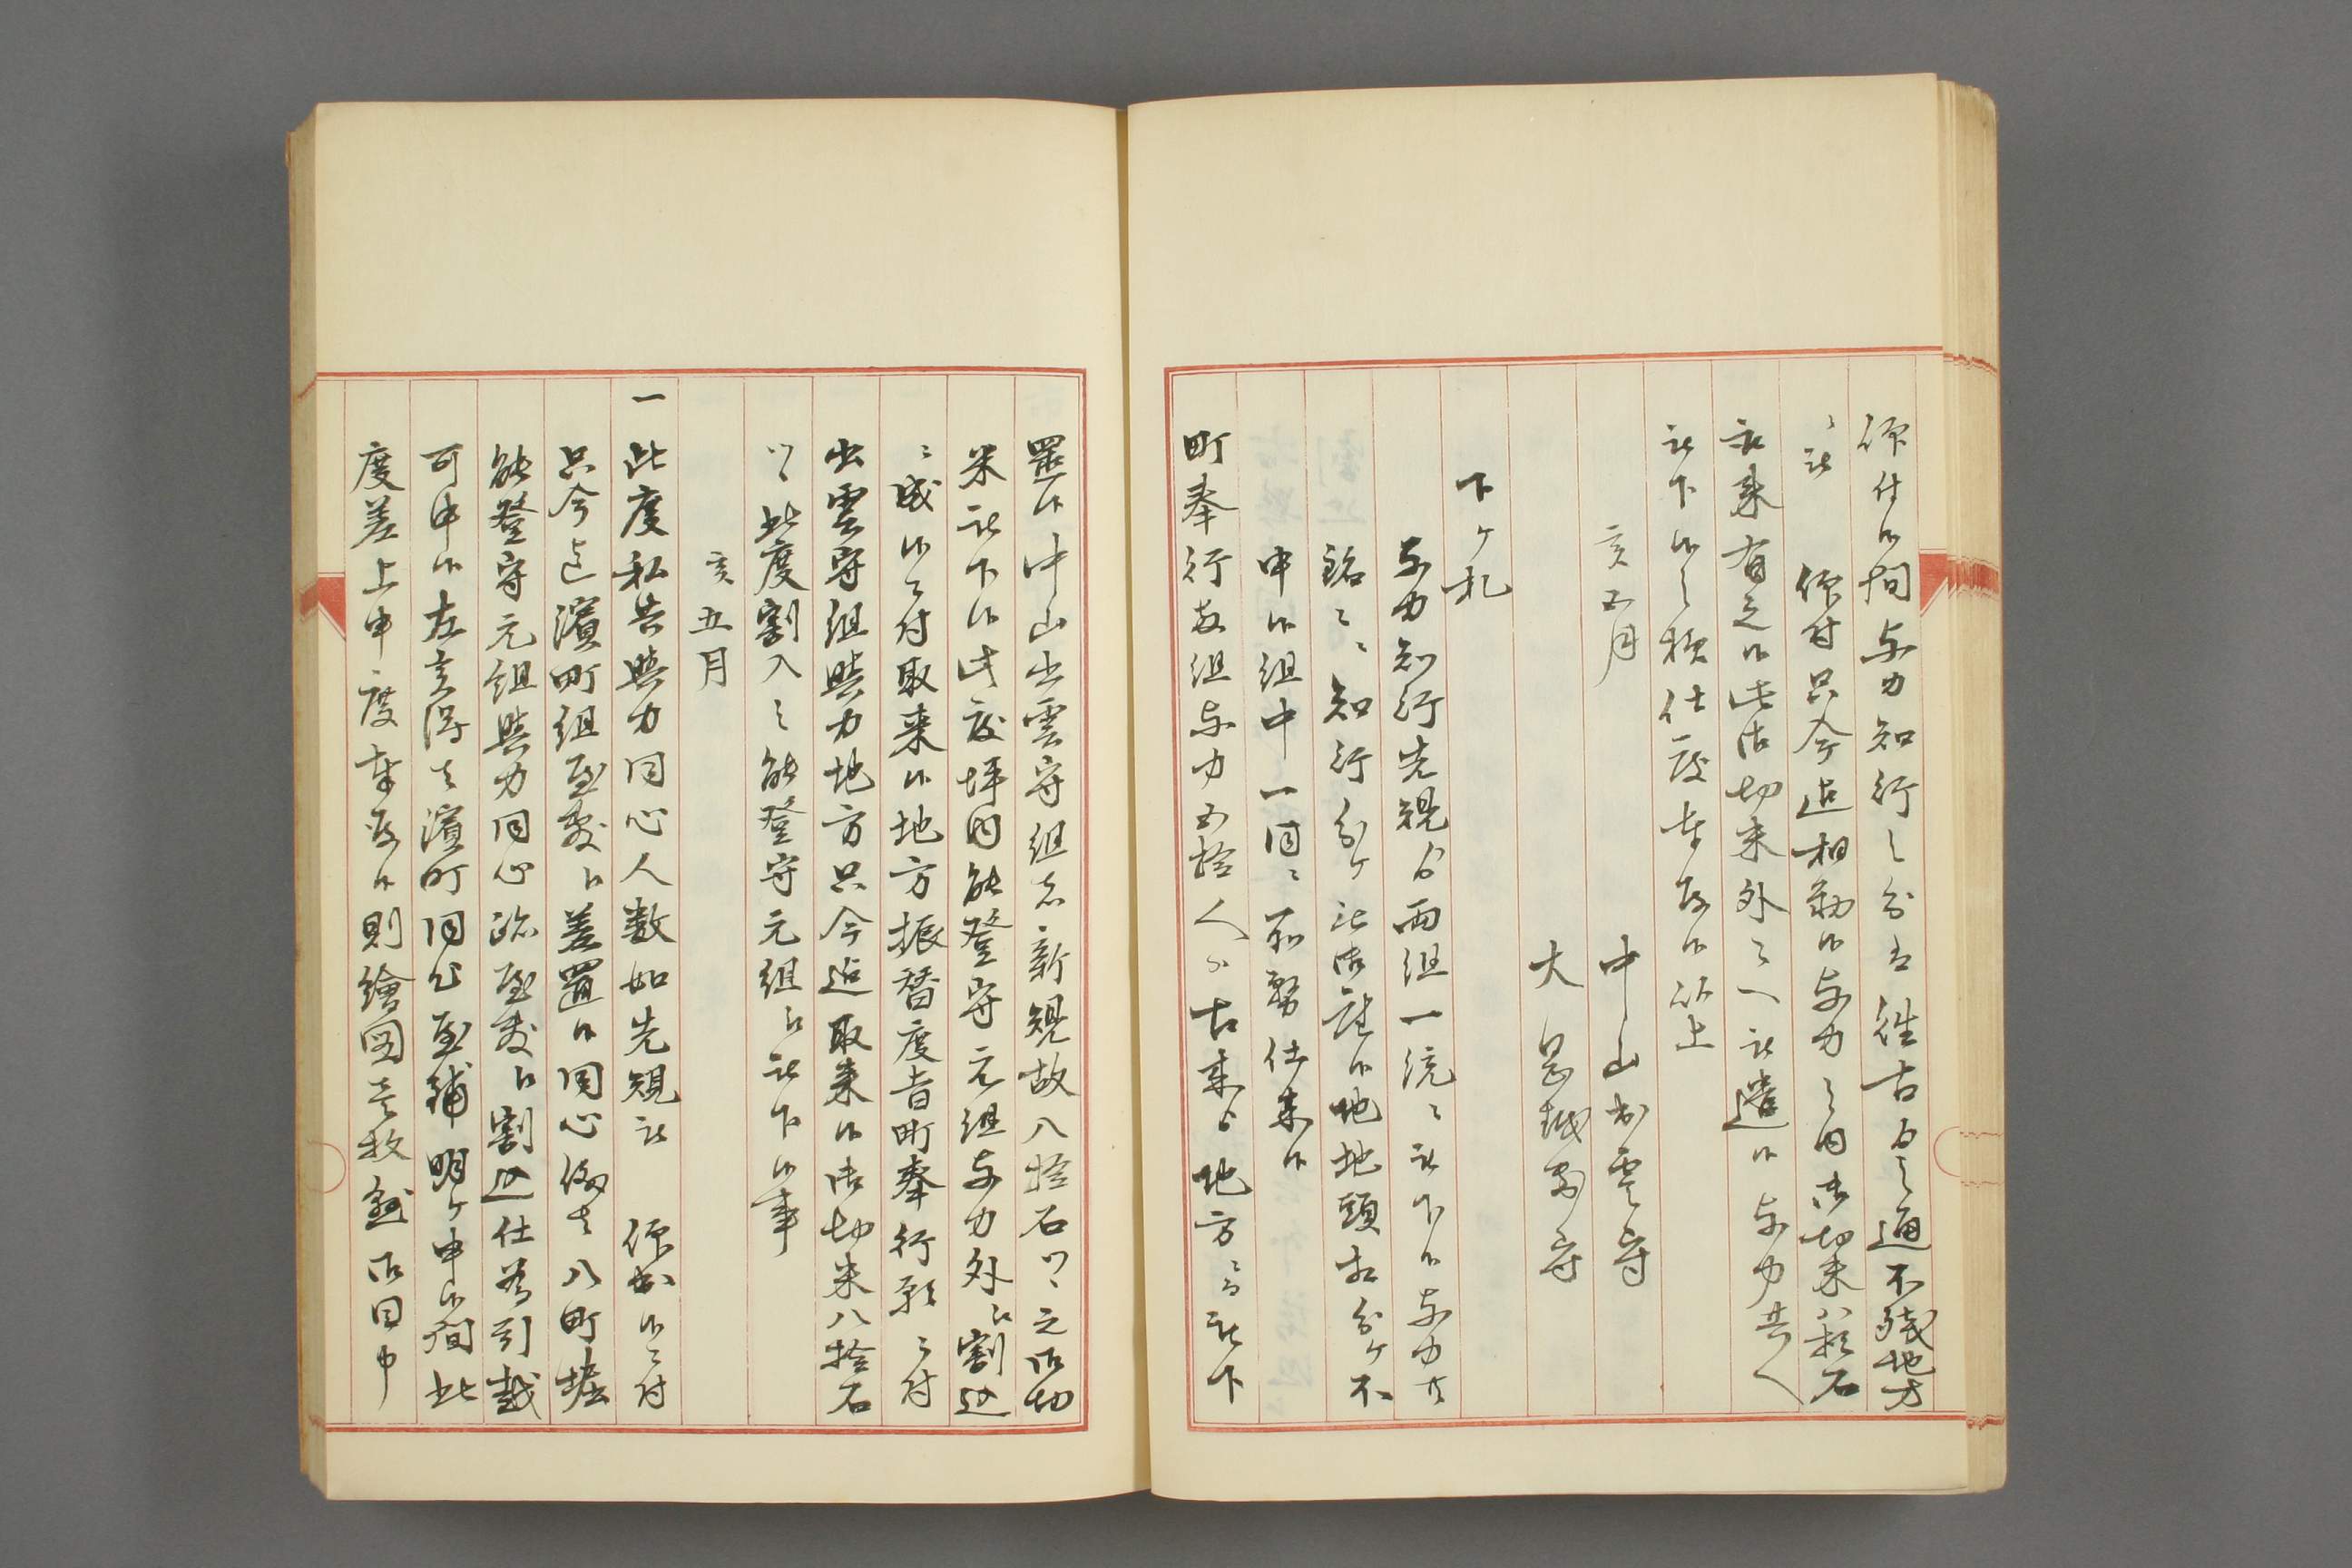 仰付候間与力知行之分は往古与之通不残地方
ニ被　仰付只今迄相勤候与力之内御切米八拾石
被来有之候此御切米外之一被遣候与力共へ
被下候之様仕度奉存候以上
亥五月　中山出雲守
大岡越前守
下ケ札
与力知行先規ゟ両組一統ニ被下候与力共
銘々ニ知行分ケ被仰渡候地地頭相分ケ不
申候組中一同ニ所務仕来候
町奉行致組与力五拾人は古来ゟ地方ニ而被下
置候中山出雲守組は新規故八拾石ツヽ之御切
米被下候此度坪内能登守元組与力外江割込
ニ成候ニ付取来候地方振替度旨町奉行願ニ付
出雲守組与力地方只今迄取来候御切米八拾石
ツヽ此度割入之能登守元組江被下候事
亥五月
一此度私共与力同心人数如先規被　仰出候ニ付
只今迄濱町組屋敷江差置候同心儀は八町堀
能登守元組与力同心跡屋敷江割込仕為引越
可申候左候得は濱町同心屋鋪明ケ申候間此
度差上申度奉存候則繪図壱枚懸御目申